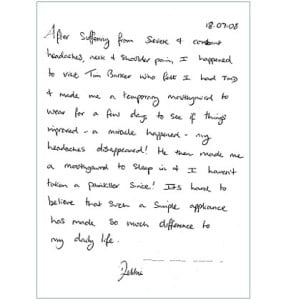 18.07.08
After suffering from severe & constant
headaches, neck & shoulder pain, I happened
to visit Tim Barker who felt I had TMD
& made me a temporary mouthguard to
wear for a few days to see if things
improved - a miracle happened - my
headaches disappeared! He then made me
a mouthguard to sleep in & I haven't
taken a painkiller since! It's hard to
believe that such a simple appliance
has made so much difference to
my daily life.
Debbie